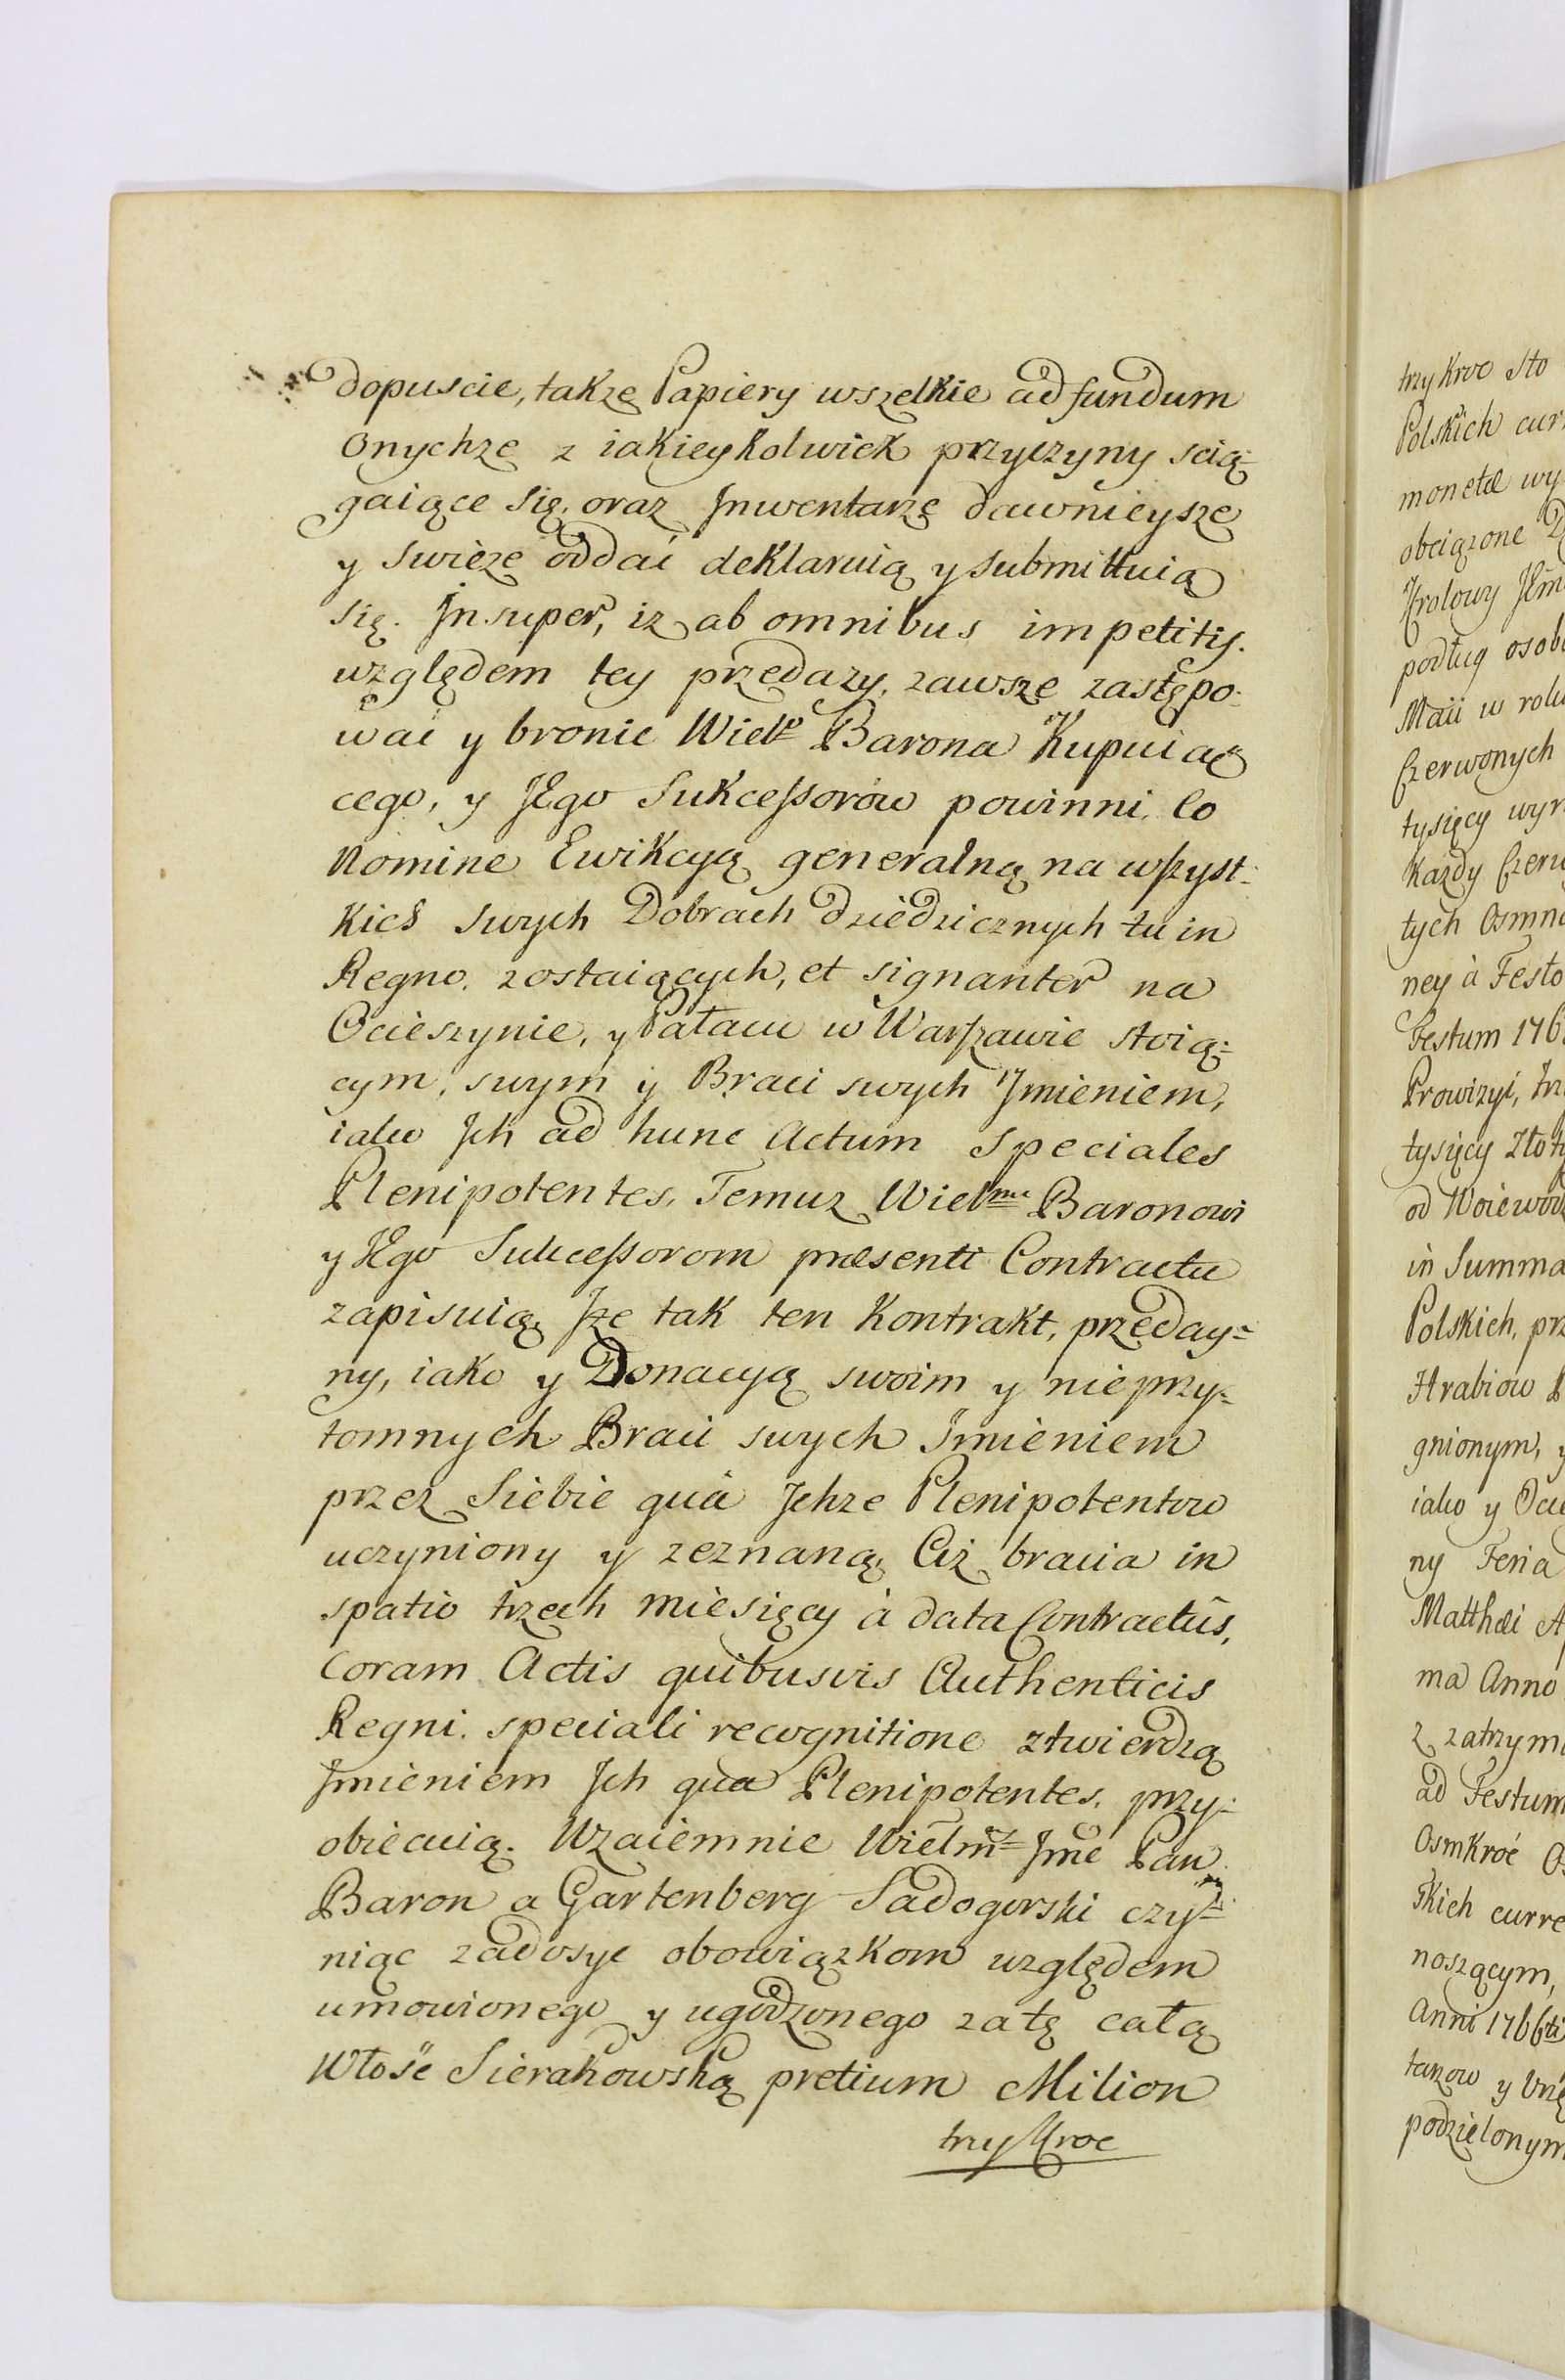 dopuscie, także Papiery wszelkie ad fundum
onychże z iakieykolwiek przyczyny scią-
gaiące się, oraz Jnwentarze dawnieysze
y swieże oddać deklaruią y submittuią
się. Jnsuper, iż ab omnibus impetitis.
względem tey przedaży, zawsze zastępo-
wać y bronic Wielgo Barona Kupuiąc
cego, y JEgo Sukcessorów powinni, Eo
Nomine Ewikcyą generalną na wszyst-
kich swych Dobrach dziedzicznych tu in
Regno. zostaiących, et signanter na
Ocieszynie, y Pałacu w Warszawie stoią-
cym, swym y Braci swych Jmieniem,
iako Jch ad hunc Actum Speciales
Plenipotentes, Temuż Wielmu Baronowi
y JEgo Sukcessorom præsenti Contractu
zapisuią, Jże tak ten Kontrakt, przeday-
ny, iako y Donacyą swoim y nieprzy-
tomnych Braci swych Jmieniem
przez Siebie quà Jchże Plenipotentow
uczyniony y zeznaną, Ciż bracia in
spatio trzech miesięcy à data Contractûs,
Coram Actis quibusvis Authenticis
Regni. speciali recognitione ztwierdzą
Jmieniem Jch qua Plenipotentes, przy-
obiecuią. Wzaiemnie Wielmy Jme Pan
Baron a Gartenberg Sadogorski czy-
niąc zadosyc obowiązkom względem
umowionego y ugodzonego za tę całą
Włość Sierakowską pretium Milion
trzy Kroc
trzy kroc sto
Polskich cur
monetæ wy
obciązone D
Krolowy JEm
podług osob
Maii w roku
Czerwonych
tysięcy wyr
Każdy Czerw
tych Osmna
ney à Festo
Festum 176
Prowizyi, trz
tysięcy Złoty
od Woiewod
in Summa
Polskich, prz
Hrabiow B
gnionym, y
iako y Ocie
ny Feria
Matthæi A
ma Anno
z zatrzym
ad Festum
Osmkroć Os
skich curre
noszącym,
Anni 1766ti
tanow y Urzę
podzielonym